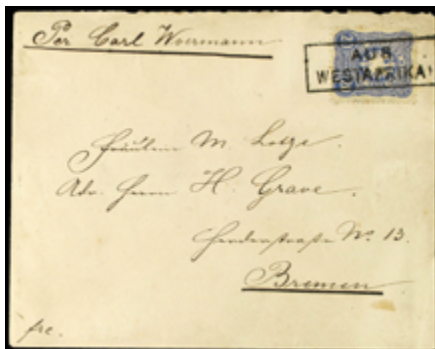 Per Carl Woermann
AUS
WESTAFRIKA
Fräulein M. Lotze.
Adr. Herrn H. Grave.
Herderstraße No 13.
Bremen
frc.